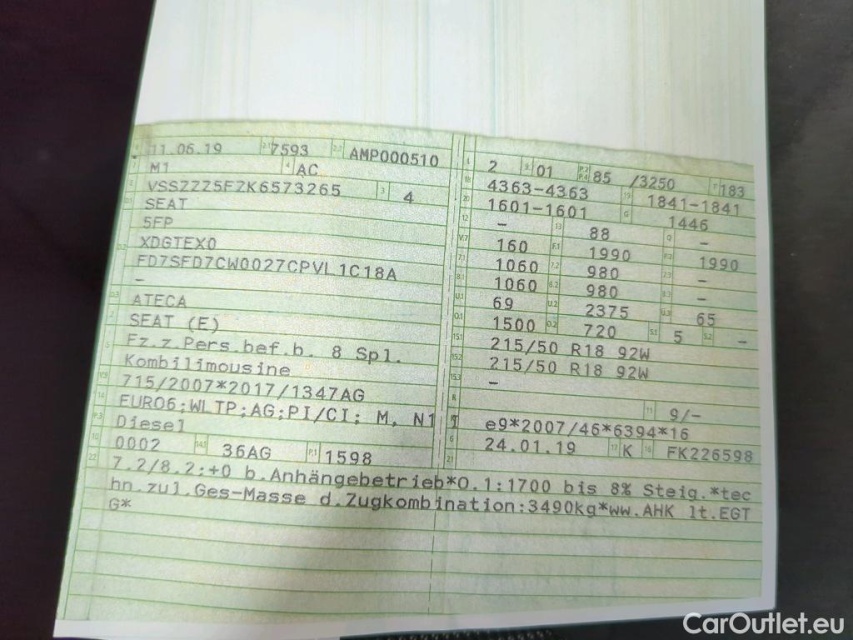 11.06.19 7593 AMP000510
M1 AC
VSSZZZ5FZK6573265 4
SEAT
5FP
XDGTEX0
FD7SFD7CW0027CPVL1C18A
-
ATECA
SEAT (E)
Fz.z.Pers.bef.b. 8 Spl.
Kombilimousine
715/2007*2017/1347AG
EURO6;WLTP;AG;PI/CI; M, N1 I
Diesel
0002 36AG 1598
2 01 85 /3250 183
4363-4363 1841-1841
1601-1601 1446
- 88 -
160 1990 1990
1060 980 -
1060 980 -
69 2375 65
1500 720 5 -
215/50 R18 92W
215/50 R18 92W
-
9/-
e9*2007/46*6394*16
24.01.19 K FK226598
7.2/8.2:+0 b.Anhängebetrieb*O.1:1700 bis 8% Steig.*tec
hn.zul.Ges-Masse d.Zugkombination:3490kg*ww.AHK lt.EGT
G*
CarOutlet.eu